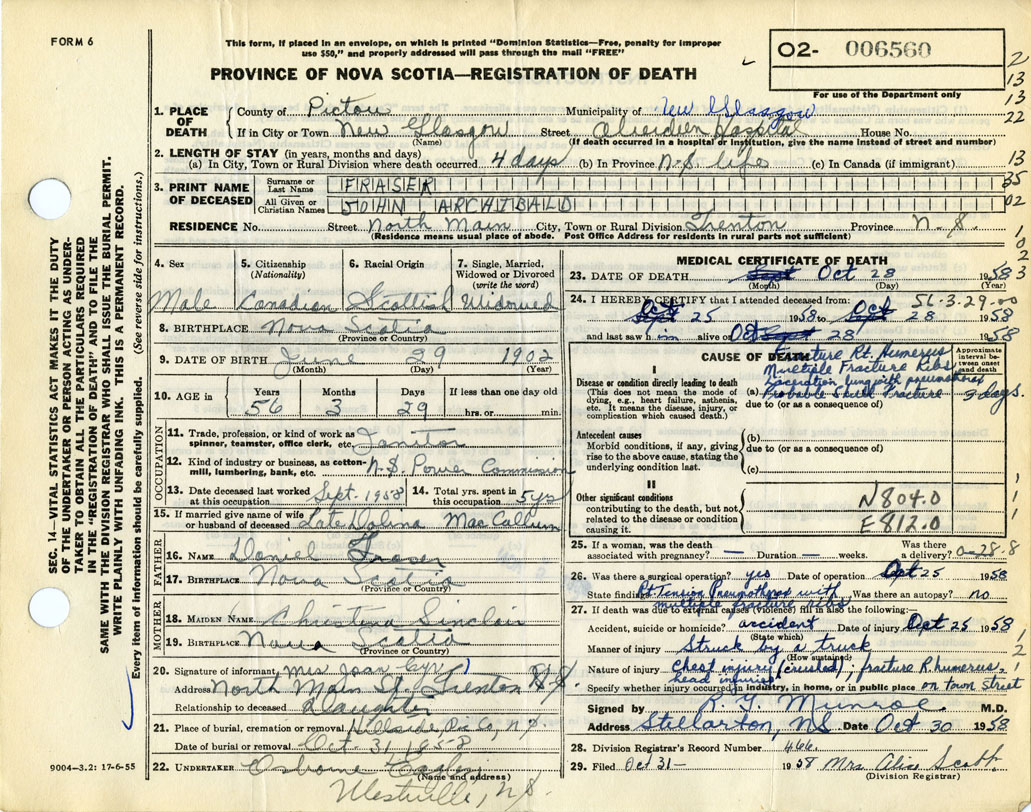 FORM 6
This form, if placed in an envelope, on which is printed "Dominion Statistics—Free, penalty for improper
use $50," and properly addressed will pass through the mail "FREE"
PROVINCE OF NOVA SCOTIA—REGISTRATION OF DEATH
02- 006560
For use of the Department only
2
13
13
22
13
35
02
1. PLACE OF DEATH
County of Pictou Municipality of New Glasgow
If in City or Town New Glasgow Street Aberdeen Hospital House No.
(Name) (If death occurred in a hospital or institution, give the name instead of street and number)
2. LENGTH OF STAY (in years, months and days)
(a) In City, Town or Rural Division where death occurred 4 days (b) In Province N.S. life (c) In Canada (if immigrant)
3. PRINT NAME OF DECEASED
Surname or Last Name FRASER
All Given or Christian Names JOHN ARCHIBALD
RESIDENCE No. Street North Main City, Town or Rural Division Trenton Province N.S.
(Residence means usual place of abode. Post Office Address for residents in rural parts not sufficient)
SEC. 14—VITAL STATISTICS ACT MAKES IT THE DUTY
OF THE UNDERTAKER OR PERSON ACTING AS UNDER-
TAKER TO OBTAIN ALL THE PARTICULARS REQUIRED
IN THE "REGISTRATION OF DEATH" AND TO FILE THE
SAME WITH THE DIVISION REGISTRAR WHO SHALL ISSUE THE BURIAL PERMIT.
WRITE PLAINLY WITH UNFADING INK. THIS IS A PERMANENT RECORD.
Every item of information should be carefully supplied. (See reverse side for instructions.)
4. Sex
Male
5. Citizenship
(Nationality)
Canadian
6. Racial Origin
Scottish
7. Single, Married,
Widowed or Divorced
(write the word)
Widowed
8. BIRTHPLACE Nova Scotia
(Province or Country)
9. DATE OF BIRTH June 29 1902
(Month) (Day) (Year)
10. AGE in
Years Months Days If less than one day
56 3 29 hrs. or min.
OCCUPATION
11. Trade, profession, or kind of work as
spinner, teamster, office clerk, etc. Janitor
12. Kind of industry or business, as cotton-
mill, lumbering, bank, etc. N.S. Power Commission
13. Date deceased last worked
at this occupation Sept. 1958
14. Total yrs. spent in
this occupation 5 yrs
15. If married give name of wife
or husband of deceased Late MacCallum
FATHER
16. NAME Daniel Fraser
17. BIRTHPLACE Nova Scotia
(Province or Country)
MOTHER
18. MAIDEN NAME Christena Sinclair
19. BIRTHPLACE Nova Scotia
(Province or Country)
20. Signature of informant Mrs Joan Cyr
Address North Main St. Trenton N.S.
Relationship to deceased Daughter
21. Place of burial, cremation or removal Hillside, Pic Co, N.S
Date of burial or removal Oct. 31, 1958
22. UNDERTAKER Osborne
(Name and address)
Westville, N.S.
9004—3.2: 17-6-55
MEDICAL CERTIFICATE OF DEATH
23. DATE OF DEATH Sept Oct 28 1958
(Month) (Day) (Year)
24. I HEREBY CERTIFY that I attended deceased from: 56-3-29-00
Sept Oct 25 1958 to Sept Oct 28 1958
and last saw him alive on Oct Sept 28 1958
CAUSE OF DEATH
Approximate
interval be-
tween onset
and death
I
Disease or condition directly leading to death
(This does not mean the mode of
dying, e.g., heart failure, asthenia,
etc. It means the disease, injury, or
complication which caused death.)
Fracture Rt. Humerus
Multiple Fracture Ribs
Laceration lung with pneumothorax
(a) Probable Skull Fracture
due to (or as a consequence of) days.
Antecedent causes
Morbid conditions, if any, giving
rise to the above cause, stating the
underlying condition last.
(b)
due to (or as a consequence of)
(c)
II
Other significant conditions
contributing to the death, but not
related to the disease or condition
causing it.
N804.0
E812.0
25. If a woman, was the death
associated with pregnancy? — Duration — weeks. Was there a delivery? 0-28-8
26. Was there a surgical operation? yes Date of operation Oct 25 1958
State findings Rt Tension Pneumothorax with Was there an autopsy? no
multiple fracture ribs
27. If death was due to external causes (violence) fill in also the following:—
Accident, suicide or homicide? accident Date of injury Oct 25 1958
(State which)
Manner of injury Struck by a truck
(How sustained)
Nature of injury Chest injury (crushed), fracture R. humerus,
head injuries
Specify whether injury occurred in industry, in home, or in public place on town street
Signed by R. G. Munroe M.D.
Address Stellarton, NS Date Oct 30 1958
28. Division Registrar's Record Number 466.
29. Filed Oct 31— 1958 Mrs Alice
(Division Registrar)